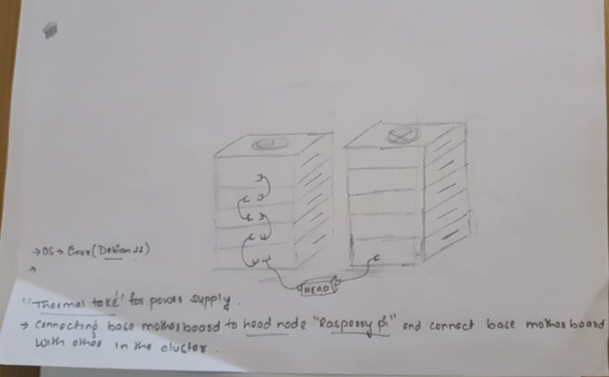 HEAD
→ OS → Linux (Debian 11)
→
"Thermal take" for power supply.
→ Connecting base motherboard to head node "Raspberry Pi" and connect base motherboard
with other in the cluster.